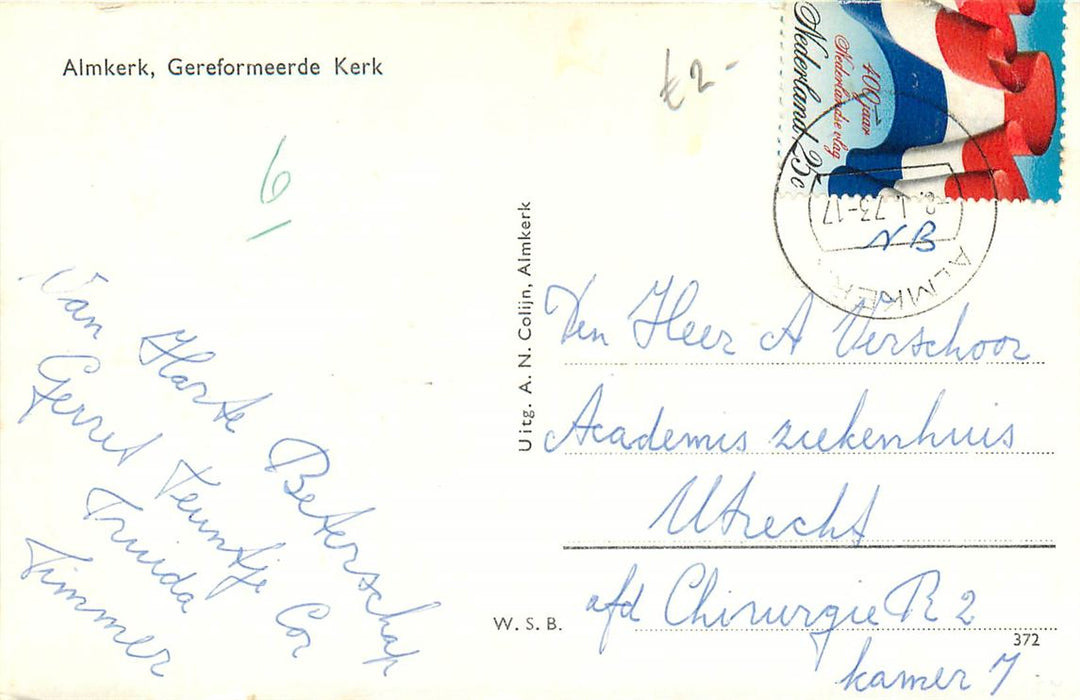 Almkerk, Gereformeerde Kerk
£2-
6/
Van Harte Beterschap
Gerret Teuntje Cor
Truida
Timmer
Uitg. A. N. Colijn, Almkerk
W. S. B.
Nederland 25c
400 jaar
Nederlandse vlag
.1.73-17
ALMKERK
NB
Den Heer A Verschoor
Academis ziekenhuis
Utrecht
afd Chirurgie R 2
kamer 7
372